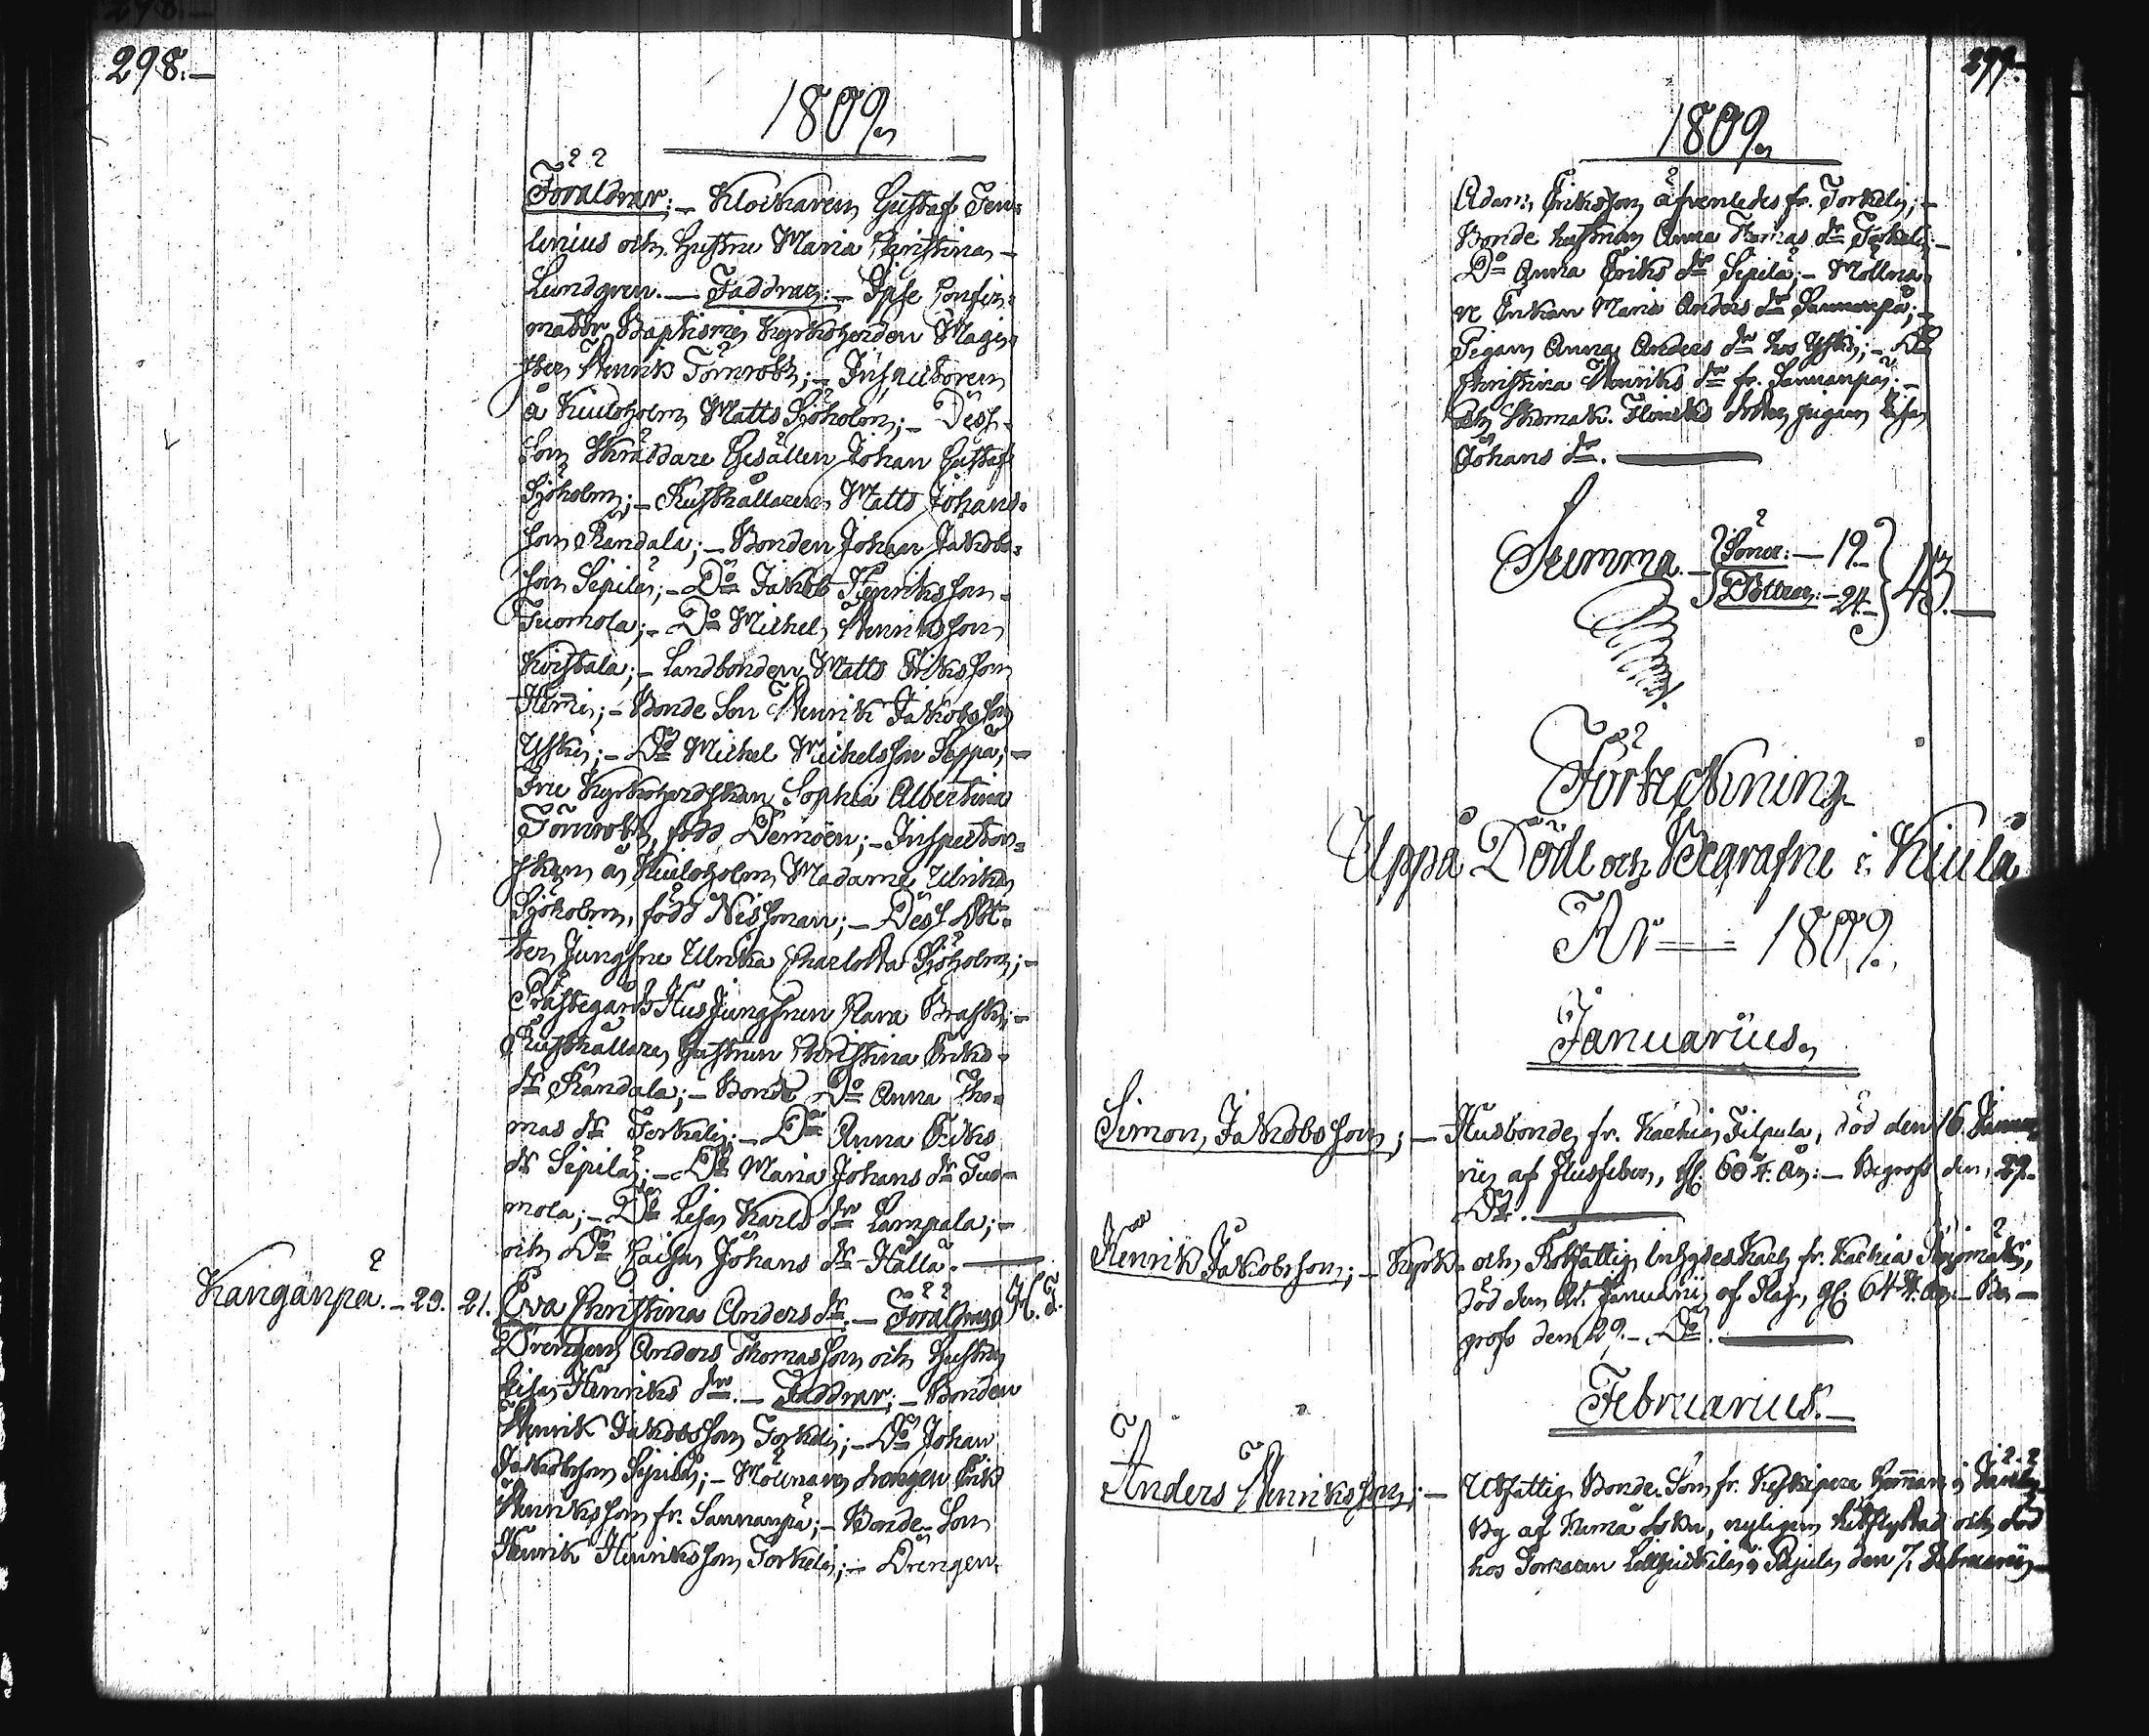 298.
1809.
Föräldrar: – Klockaren Gustaf Ten=
lenius och Hustru Maria Christina
Lundgren. – Faddrar: – Ipse Confir=
mator Baptismi Kyrkoherden Magi=
ster Henrik Törnroth; – Inspectoren
å Kiuloholm Matts Sjöholm; – Dess
Son Skräddare Gesällen Johan Gustaf
Sjöholm; – Rusthållaren Matts Johans=
son Randala; – Bonden Johan Jakobs=
son Sepilä; – Do Jakob Henriksson
Tuomola; – Do Michel Henriksson
Koistala; – Landbonden Matts Eriksson
; – Bonde Son Henrik Jakobsson
Yski; – Do Michel Michelsson Seppä; –
Fru Kyrkoherdskan Sophia Albertina
Törnroth, född Demoën; – Inspector=
skan å Kiuloholm Madame Ulrika
Sjöholm, född Nessman; – Dess Dot=
ter Jungfru Ulrika Charlotta Sjöholm; –
Prästegårds Husjungfrun Clara Brask; –
Rusthållare Hustrun Christina Eriks=
dr Randala; – Bonde Do Anna Tho=
mas dr Torkeli; – Do Anna Eriks
dr Sepilä; – Do Maria Johans dr Tuo=
mola; – Do Lisa Karls dr Lampala; –
och Do Caisa Johans dr Hälla.
Kangänpä. – 20. 21. Eva Christina Anders dr. – Föräldrar
Drengen Anders Thomasson och Hustru
Lisa Henriks dr. – Faddrar; – Bonden
Henrik Jakobsson Torkeli; – Do Johan
Jakobsson Sepilä; – Möllnare drengen Erik
Henriksson fr. Sannanpä; – Bonde Son
Henrik Henriksson Torkeli; – Drengen
299.
1809.
Adam Eriksson äfvenledes fr. Torkeli; –
Bonde hustrun Anna Thomas dr Torkeli; –
Do Anna Eriks dr Sepilä; – Möllna=
re Enkan Maria Anders dr Sannanpä; –
Pigan Anna Anders dr hos Yski; – Do
Christina Henriks dr fr. Sannanpä; –
och Skomak. dotter, pigan Lisa
Johans dr.
Summa – Söner: – 19.
Döttrar: – 24. 43.
Förteckning
Uppå Döde och Begrafne i Kiula
År 1809.
Januarius.
Simon Jakobsson; – Husbonde fr. Kackia Filpula, död den 16. Janua=
rii af , gl. 60 . år. – Begrofs den 29.
Do.
Henrik Jakobsson; – Kyrk- och Rotfattig fr. Kackia
död den Januarii af , gl. 64 . år – Be=
grofs den 29. – Do.
Februarius.
Anders Henriksson; – Utfattig Bonde Son fr.
by af Sokn, nyligen hitflyttad och död
hos i den 7. Februarii